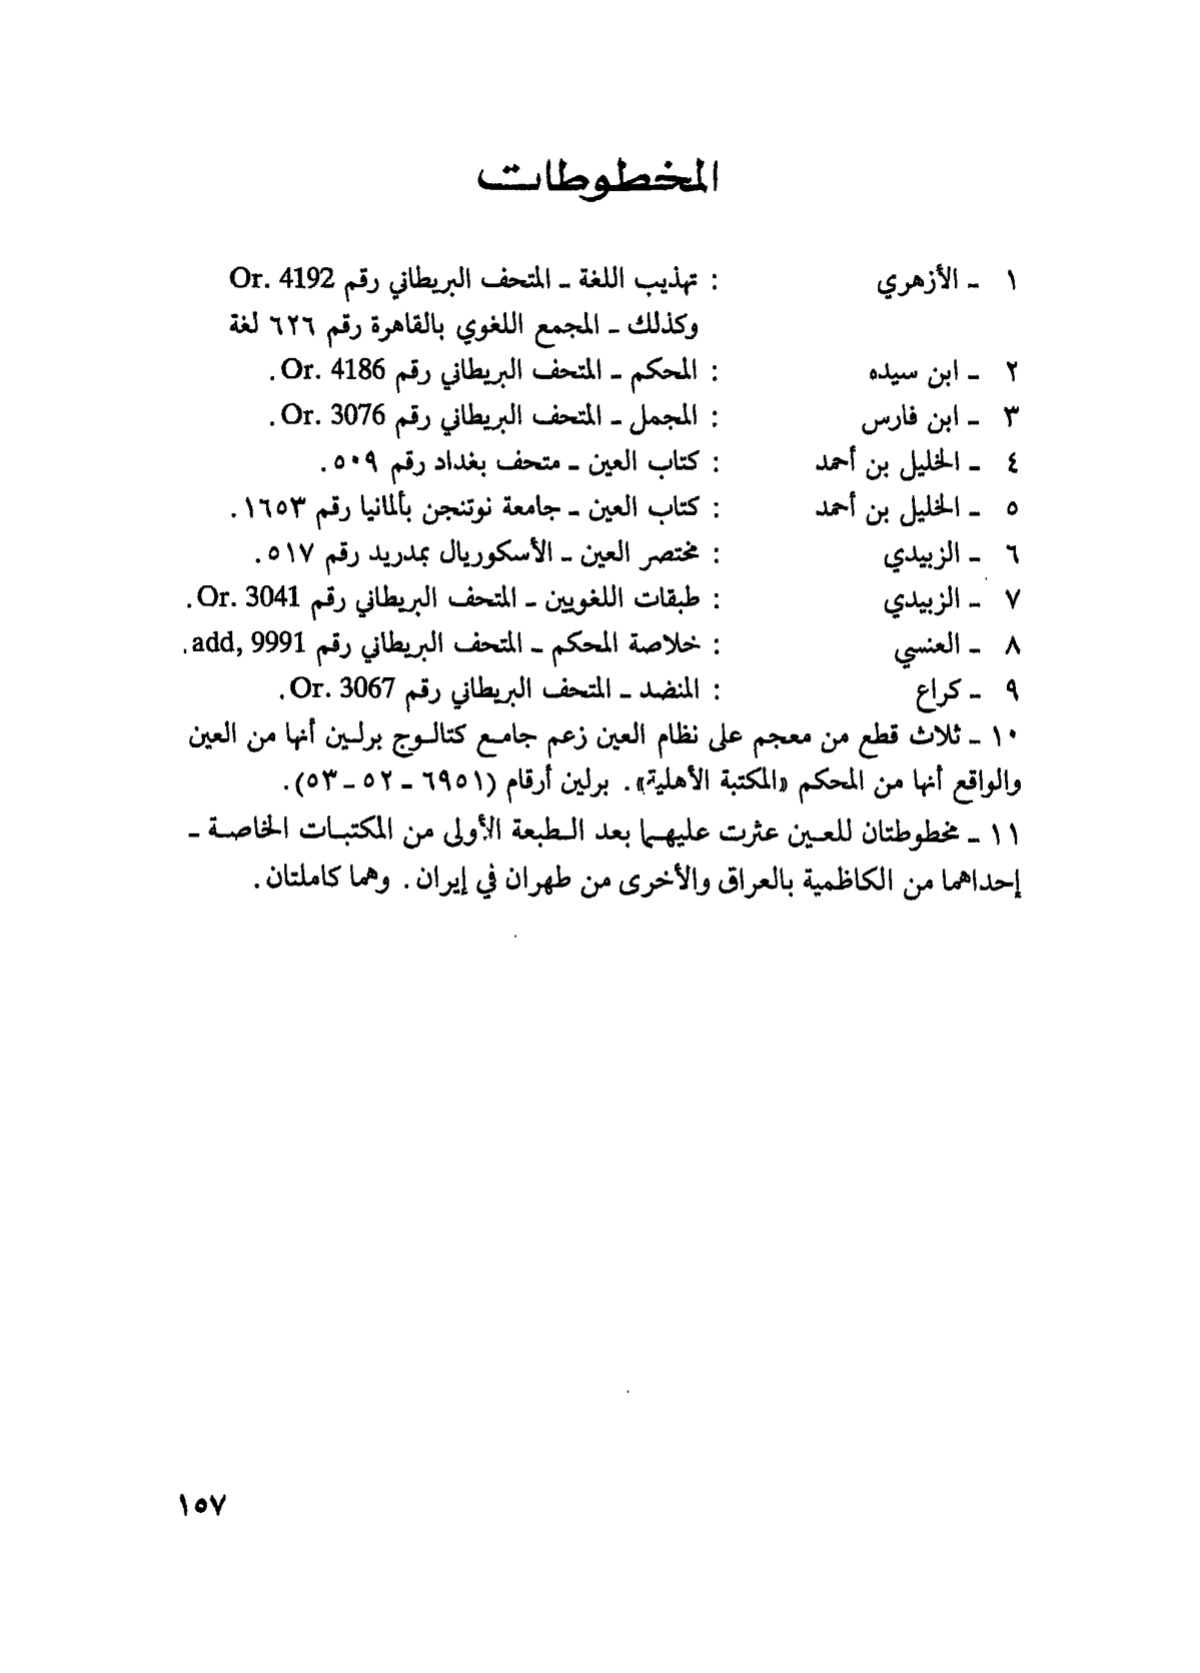 المخطوطات
١ - الأزهري : تهذيب اللغة - المتحف البريطاني رقم Or. 4192
وكذلك - المجمع اللغوي بالقاهرة رقم ٦٢٦ لغة
٢ - ابن سيده : المحكم - المتحف البريطاني رقم Or. 4186.
٣ - ابن فارس : المجمل - المتحف البريطاني رقم Or. 3076.
٤ - الخليل بن أحمد : كتاب العين - متحف بغداد رقم ٥٠٩.
٥ - الخليل بن أحمد : كتاب العين - جامعة نوتنجن بألمانيا رقم ١٦٥٣.
٦ - الزبيدي : مختصر العين - الأسكوريال بمدريد رقم ٥١٧.
٧ - الزبيدي : طبقات اللغويين - المتحف البريطاني رقم Or. 3041.
٨ - العنسي : خلاصة المحكم - المتحف البريطاني رقم add, 9991.
٩ - كراع : المنضد - المتحف البريطاني رقم Or. 3067.
١٠ - ثلاث قطع من معجم على نظام العين زعم جامع كتالوج برلين أنها من العين
والواقع أنها من المحكم «المكتبة الأهلية». برلين أرقام (٦٩٥١ - ٥٢ - ٥٣).
١١ - مخطوطتان للعين عثرت عليهما بعد الطبعة الأولى من المكتبات الخاصة -
إحداهما من الكاظمية بالعراق والأخرى من طهران في إيران. وهما كاملتان.
١٥٧